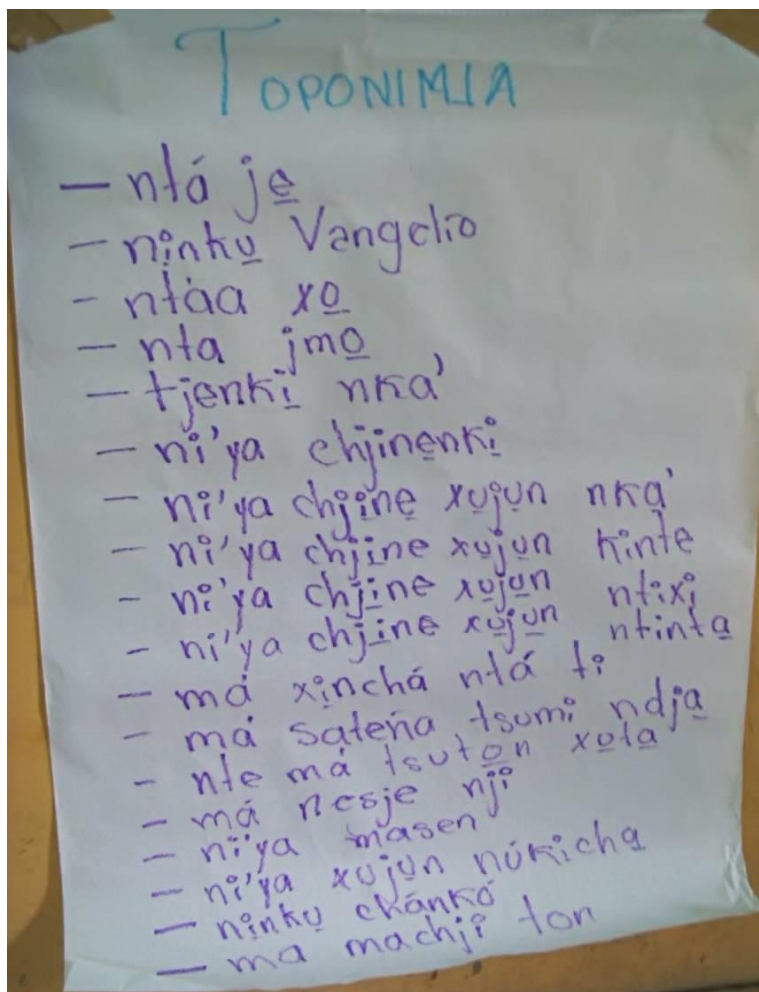 TOPONIMIA
— ntá je̱
— ni̱nku̱ Vangelio
- ntáa xo̱
— nta jmo̱
— tjenki̱ nka'
— ni'ya chjine̱nki̱
— ni'ya chji̱ne̱ xu̱ju̱n nka̱'
— ni'ya chji̱ne xu̱ju̱n kinte
- ni'ya chji̱ne xu̱ju̱n ntixi̱
- ni'ya chji̱ne xu̱ju̱n ntinta̱
— má xi̱nchá ntá ti
— má sa̱teña tsumi ndja̱
- nte má tsuto̱n xu̱ta̱
— má nesje nji
— ni'ya masen
— ni'ya xu̱ju̱n núkicha̱
— ni̱nku̱ chánkó
— ma machji ton